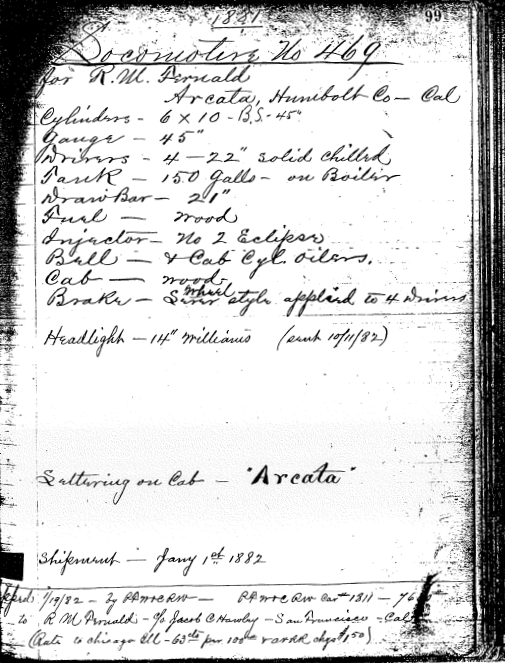 1881
99
Locomotive No 469
for R. M. Fernald
Arcata, Humbolt Co — Cal
Cylinders - 6 x 10 - B.S. - 45"
Gauge - 45"
Drivers - 4 — 22" solid chilled
Tank - 150 Galls - on Boiler
Draw Bar - 21"
Fuel — wood
Injector - No 2 Eclipse
Bell — & Cab Cyl. oilers.
Cab — wood
Wheel
Brake — style applied to 4 Drivers
Headlight - 14" Williams (sent 10/11/82)
Lettering on Cab - "Arcata"
Shipment — Jany 1st 1882
1/19/82 - by — Car 1311 - 76
to R M Fernald - c/o Jacob C Hawley - San Francisco - Cal
(Rate to chicago Ill - 63cts per 100 1.50)